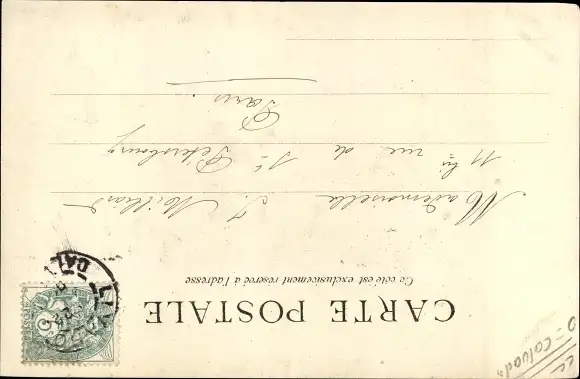 CARTE POSTALE
Ce côté est exclusivement réservé à l'adresse
Mademoiselle J. Milliard
11 bis rue de St Pétersbourg
Paris